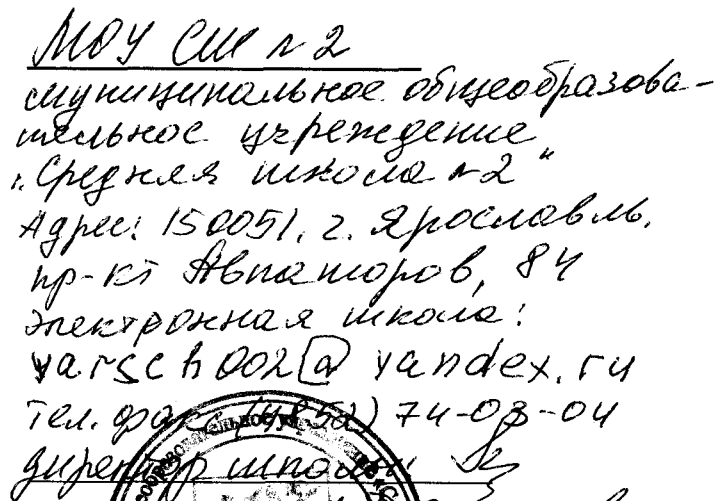 МОУ СШ № 2
муниципальное общеобразова-
тельное учреждение
"Средняя школа №2"
Адрес: 150051, г. Ярославль,
пр-кт Авиаторов, 84
электронная школа:
yarsch002@yandex.ru
тел. факс (4852) 74-03-04
директор школы